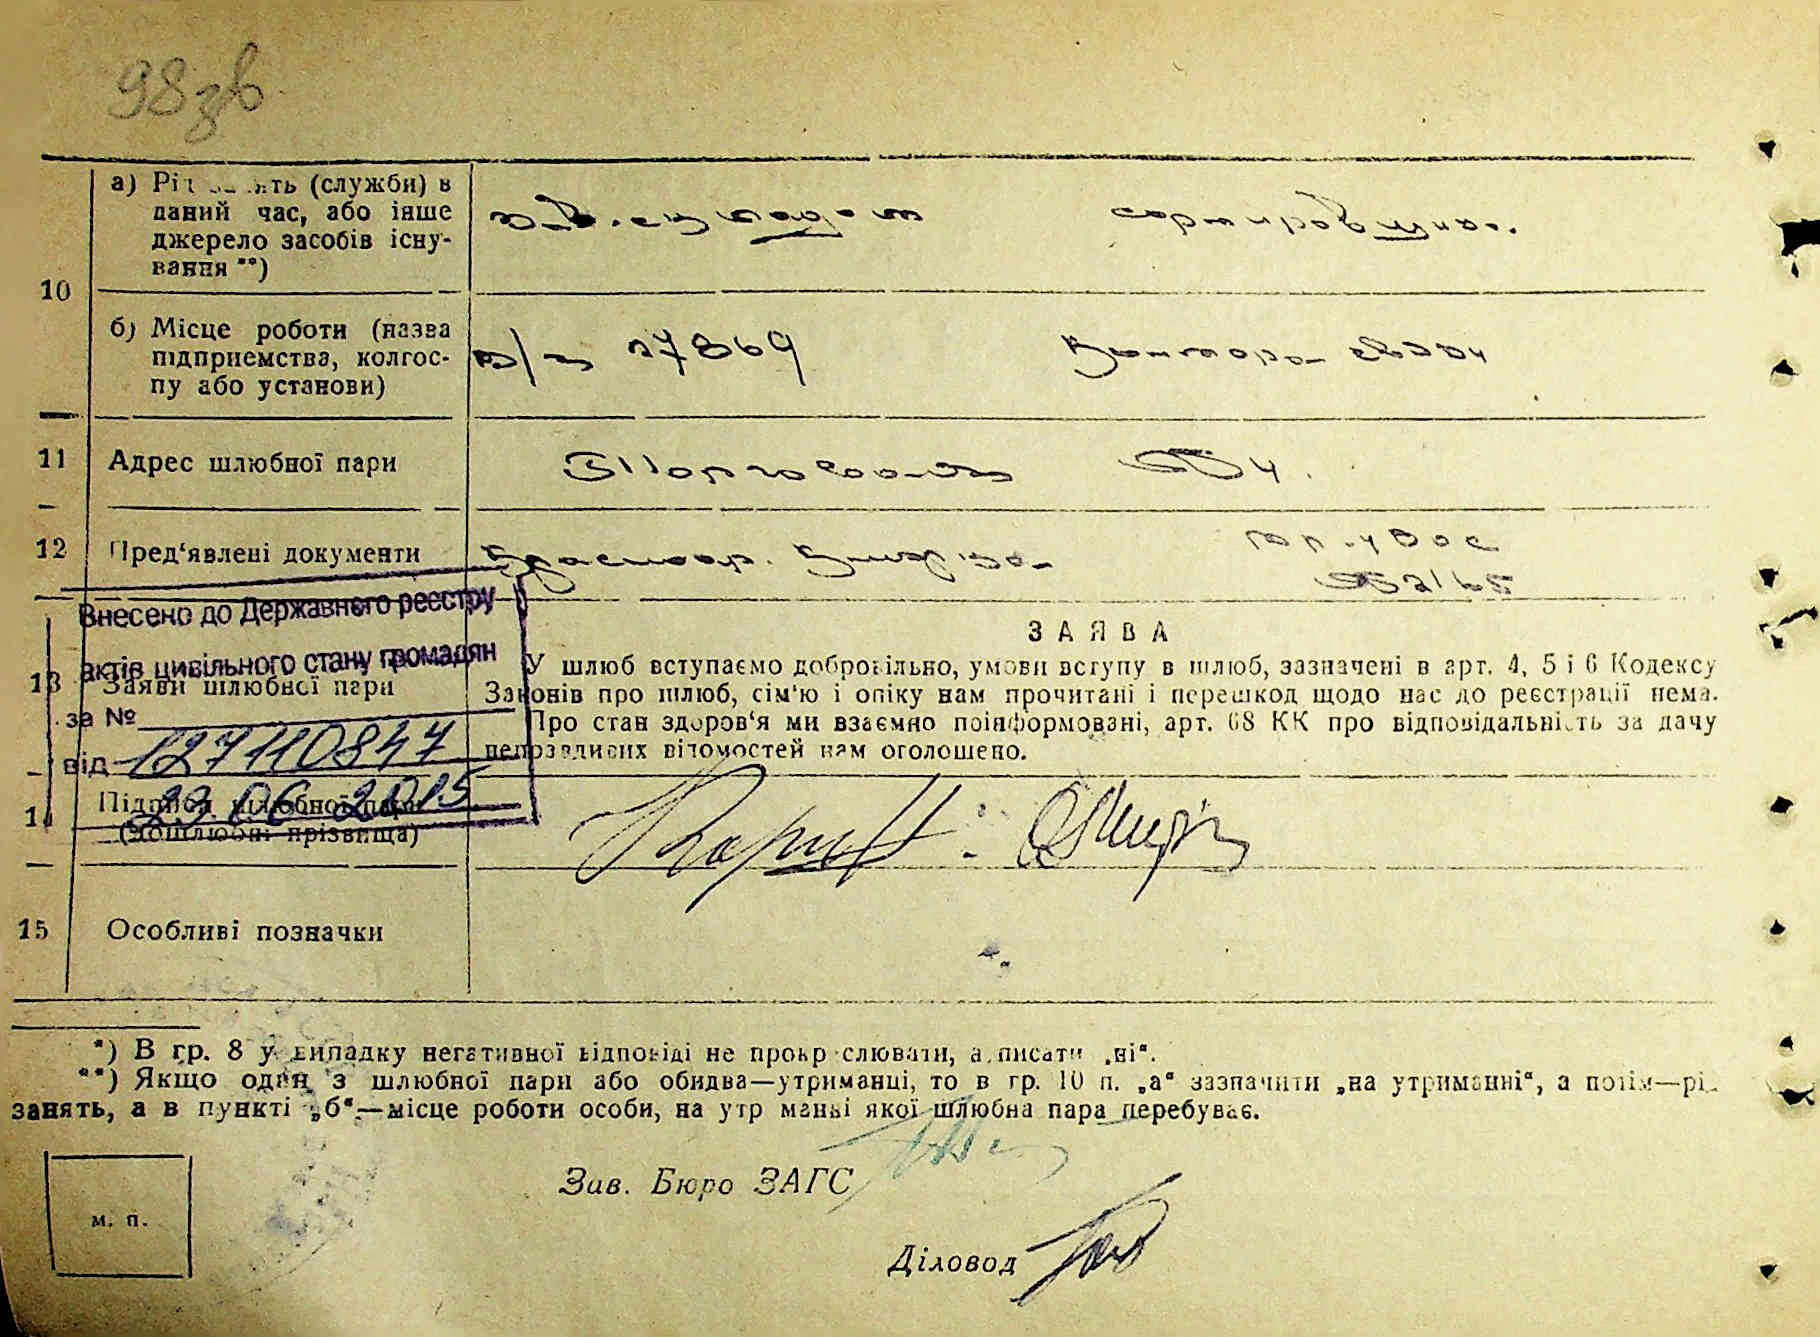 98зв
а) Рід занять (служби) в
даний час, або інше
джерело засобів існу-
вання **)
сортировщик.
10
б) Місце роботи (назва
підприємства, колгос-
пу або установи)
в/ч 27869
Контора связи
11 Адрес шлюбної пари
Торговая № 4.
12 Пред‘явлені документи
Красноар. книжка
Внесено до Державного реєстру
актів цивільного стану громадян
за №
127110847
від
23.06.2015
13 Заяви шлюбної пари
ЗАЯВА
У шлюб вступаємо добровільно, умови вступу в шлюб, зазначені в арт. 4, 5 і 6 Кодексу
Законів про шлюб, сім‘ю і опіку нам прочитані і перешкод щодо нас до реєстрації нема.
Про стан здоров‘я ми взаємно поінформовані, арт. 68 КК про відповідальність за дачу
неправдивих відомостей нам оголошено.
14 Підписи шлюбної пари
(дошлюбні прізвища)
15 Особливі позначки
*) В гр. 8 у випадку негативної відповіді не прокреслювати, а писати „ні“.
**) Якщо один з шлюбної пари або обидва—утриманці, то в гр. 10 п. „а“ зазначити „на утриманні“, а потім—рід
занять, а в пункті „б“—місце роботи особи, на утриманні якої шлюбна пара перебуває.
Зав. Бюро ЗАГС
м. п.
Діловод